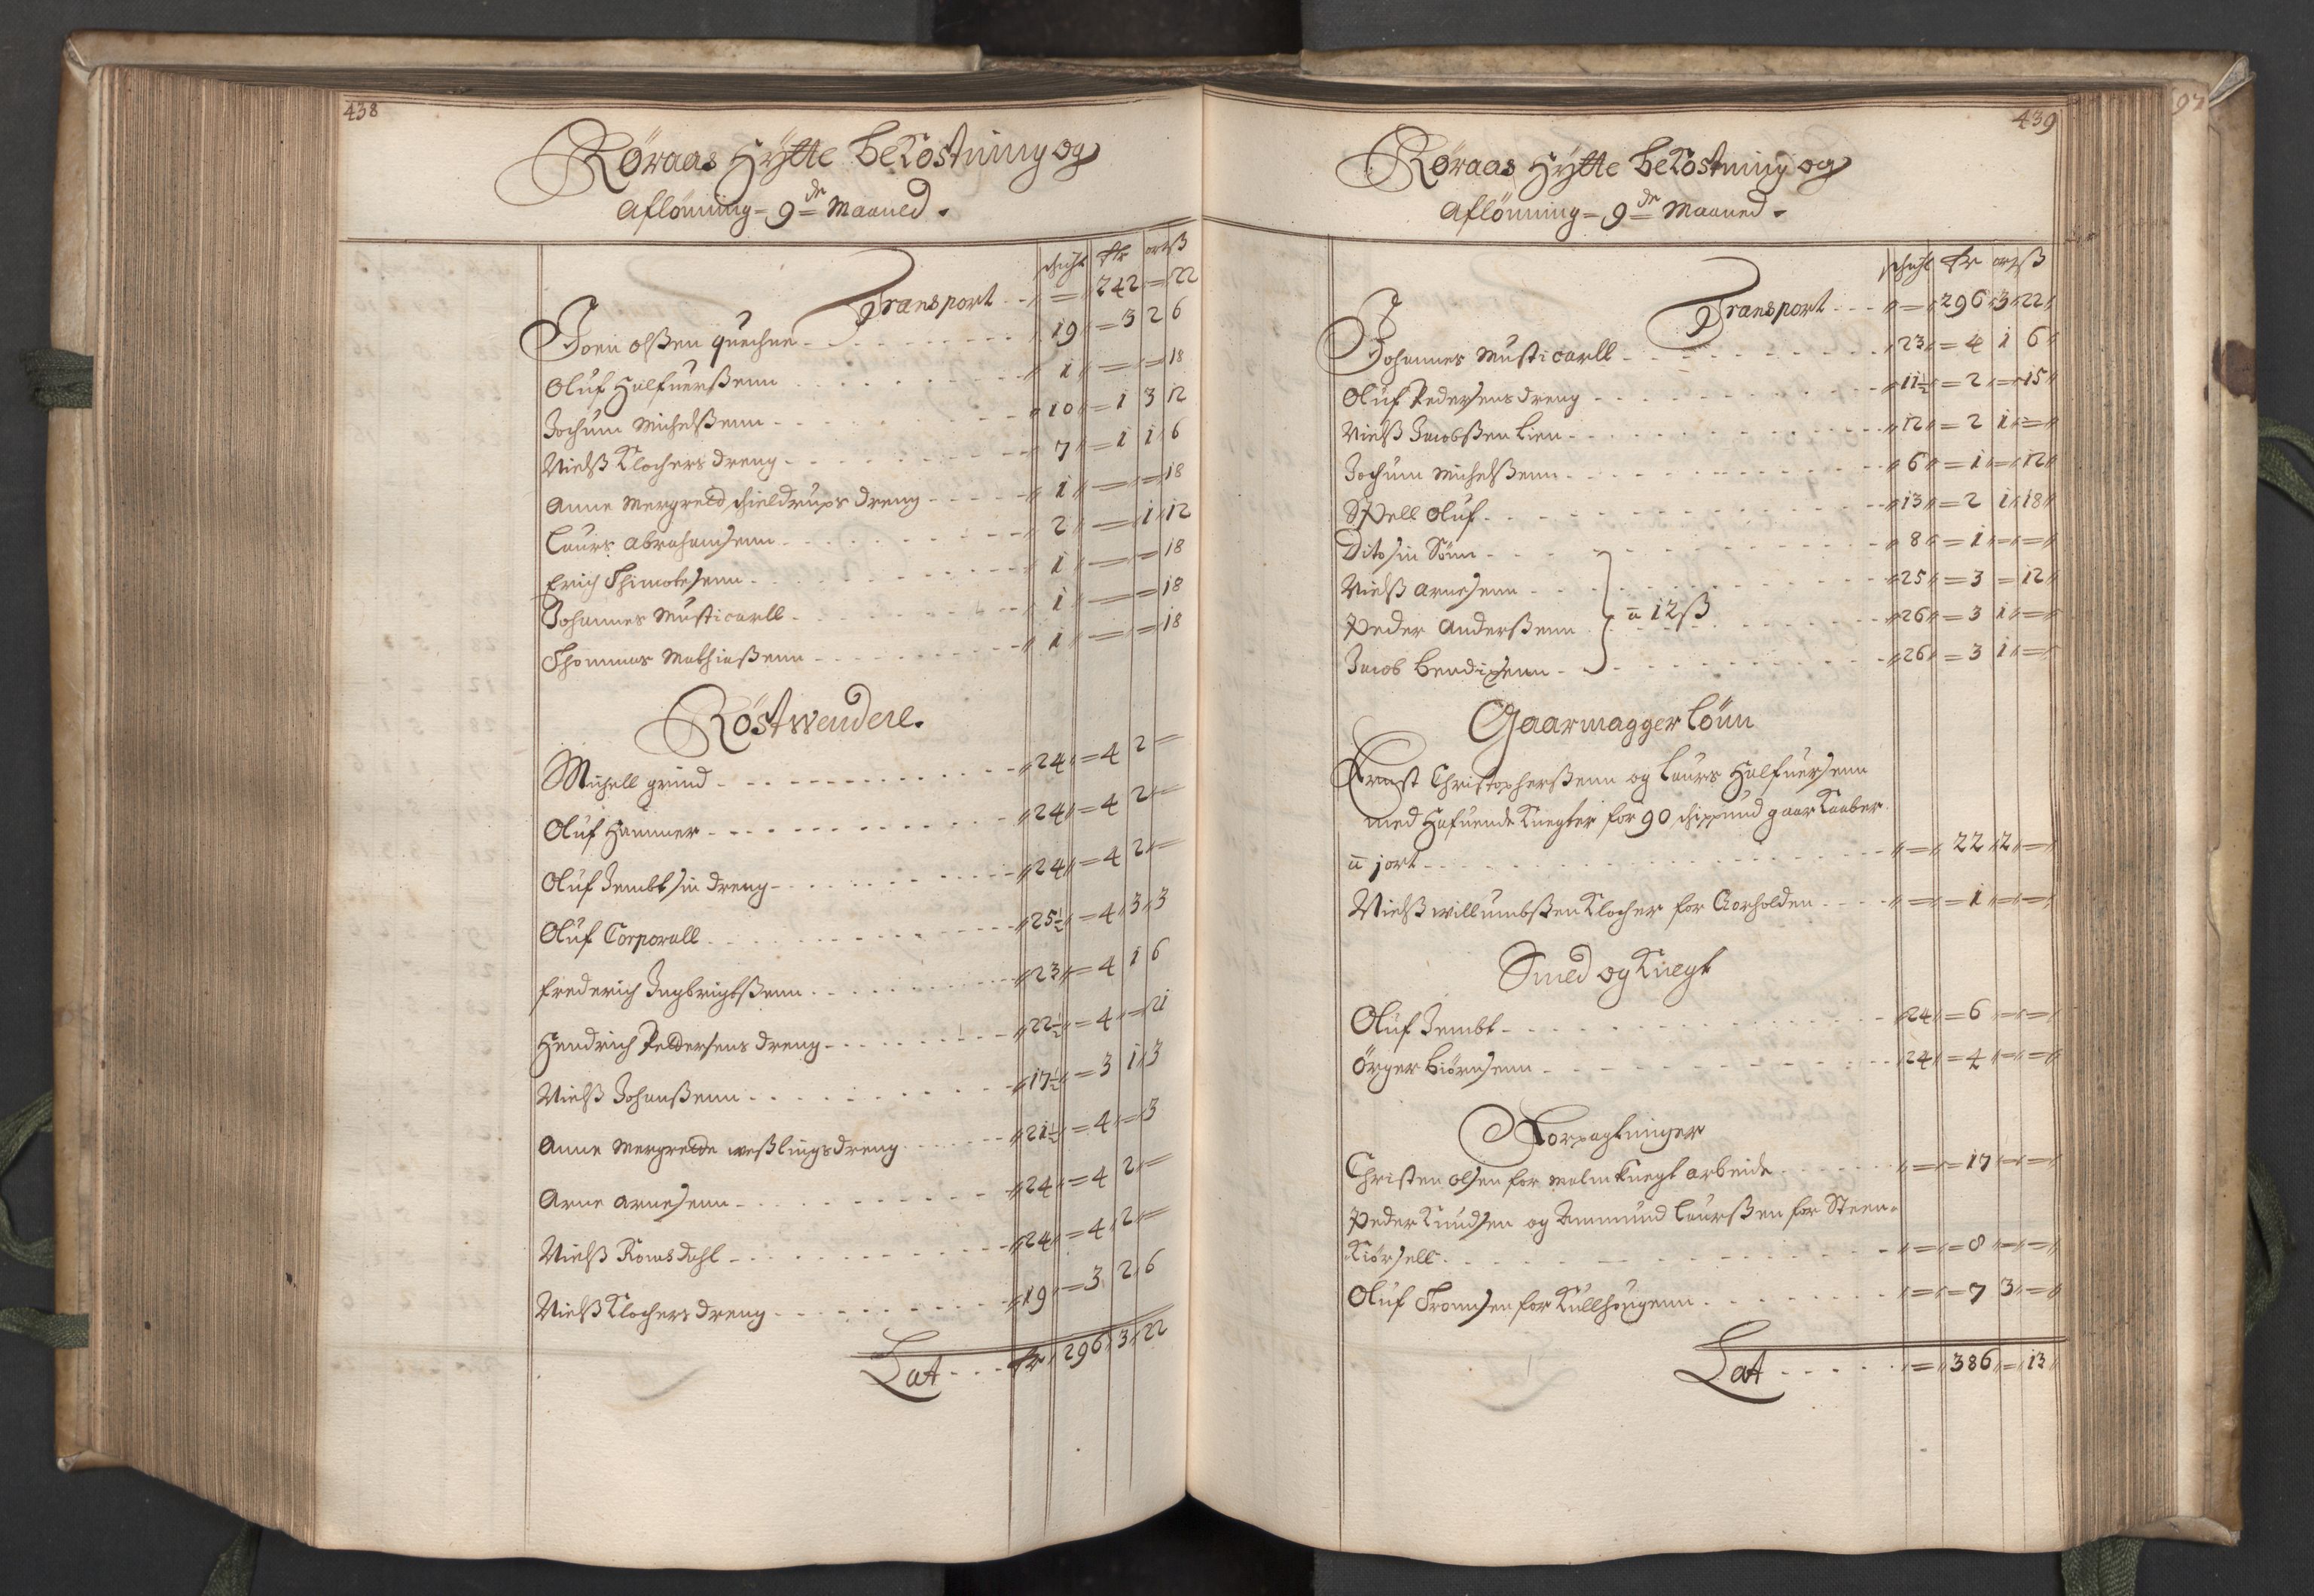 438
Röraas Hÿtte beKostning og
Aflönning = 9de Maaned.
schicht Rdr ort ß
Transport - - " = " 242 = 22
Joen olßen quechne - - - 19 " = 3 2 6
Oluf Halfuerßenn - - - " 1 " = " = 18
Jochum Michelßenn - - - " 10 " = 1 3 12
Nielß Klochers dreng - - - 7 " = 1 1 " 6
Anne Mergretd schieldrups dreng - - - " 1 " = " = 18
Laurs Abrahamsenn - - - 2 " = " 1 " 12
Erich Thimotesenn - - - " 1 " = " = 18
Johannes Musticarll - - - " 1 " = " = 18
Thommas Mathiaßenn - - - " 1 " = " = 18
Röstwendere.
Michell grind - - - " 24 " = 4 2 =
Oluf Hammer - - - " 24 " = 4 2 " =
Oluf Jembt sin dreng - - - " 24 " = 4 2 " =
Oluf Corporall - - - " 25½ " = 4 " 3 " 3
Frederich Ingbrigtßenn - - - " 23 " = 4 1 6
Hendrich Pedersens dreng - - - " 22½ " = 4 " = " 21
Nielß Johanßenn - - - " 17½ " = 3 1 " 3
Anne Mergrede weßlings dreng - - - " 21½ " = 4 " = " 3
Arne Arnesenn - - - " 24 " = 4 2 " =
Nielß Romsdahl - - - " 24 " = 4 " 2 " =
Nielß Klochers dreng - - - " 19 " = 3 2 " 6
Lat - - - Rdr " 296 " 3 " 22
439
Röraas Hÿtte beKostning og
Aflönning = 9de Maaned.
schicht Rdr ort ß
Transport - - - " = " 296 " 3 " 22 "
Johannes Musticarll - - - " 23 " = 4 1 6 "
Oluf Pedersens dreng - - - " 11½ " = 2 " = " 15 "
Nielß Jacobßen Lien - - - " 12 " = 2 1 " = "
Jochum Michelßenn - - - " 6 " = 1 " = " 12 "
Spell Oluf - - - " 13 " = 2 1 " 18 "
Dito sin Sönn - - - " 8 " = 1 " = " = "
Nielß Arnesenn - - - " 25 " = 3 = 12 "
Peder Anderßenn } a 12 ß - - - " 26 " = 3 1 " = "
Jacob Bendixenn - - - " 26 " = 3 1 " = "
Gaarmagger lönn
Ernst Christopherßenn og Laurs Halfuersenn
med Hafuende Knegter for 90 schippund gaar Kaaber
a 1 ort - - - " = " 22 " 2 " = "
Nielß willumbßen Klocher for Aarholden - - - " = " = 1 " = " = "
Smed og Knegt
Oluf Jembt - - - 24 " = 6 " = " = "
Örger Biörnsenn - - - 24 " = 4 " = " = "
Forpagtninger
Christen Olsen for malm knegt arbeide - - - " = " = 17 " = " = "
Peder Knudsen og Ammund Laurßen for Steen=
Kiörsell - - - " = " = 8 " = " = "
Oluf Tronnsen for Kullhougenn - - - " = " = 7 3 " = "
Lat - - - " = " 386 " = " 13 "